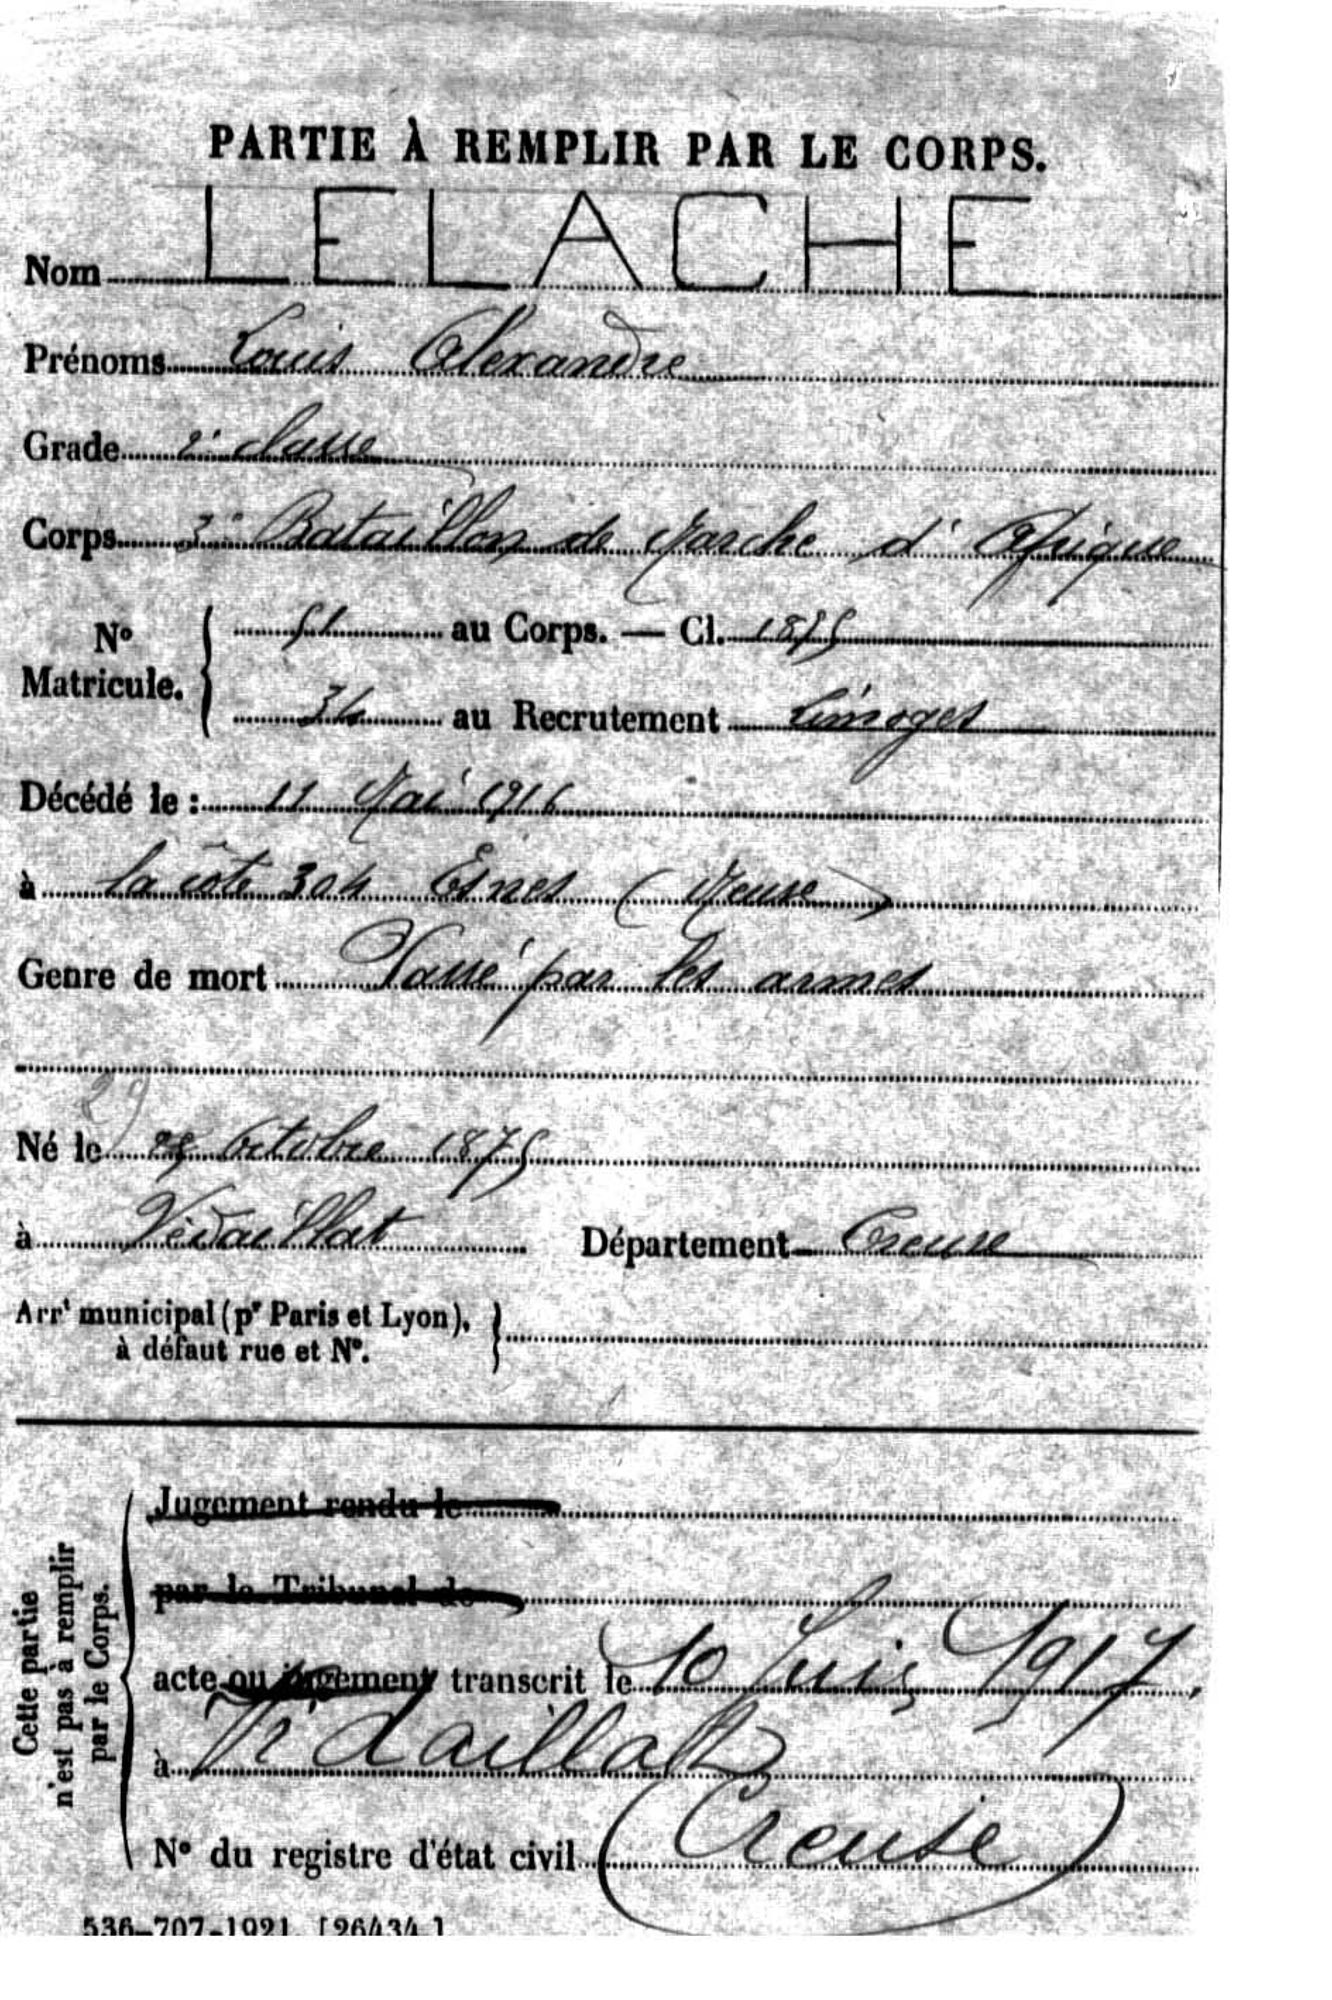 PARTIE À REMPLIR PAR LE CORPS.
Nom LELACHE
Prénoms Louis Alexandre
Grade 2e classe
Corps 3e Bataillon de Marche d'Afrique
No Matricule. { 51 au Corps. — Cl. 1875
34 au Recrutement Limoges
Décédé le : 11 Mai 1916
à la côte 304 Esnes (Meuse)
Genre de mort Passé par les armes
29
Né le Octobre 1875
à Vidaillat Département Creuse
Arrt municipal (pr Paris et Lyon), }
à défaut rue et No.
Cette partie
n'est pas à remplir
par le Corps.
Jugement rendu le
par le Tribunal de
acte ou jugement transcrit le 10 Juin 1917.
à Vidaillat
(Creuse)
No du registre d'état civil
536-707-1921. [26434.]